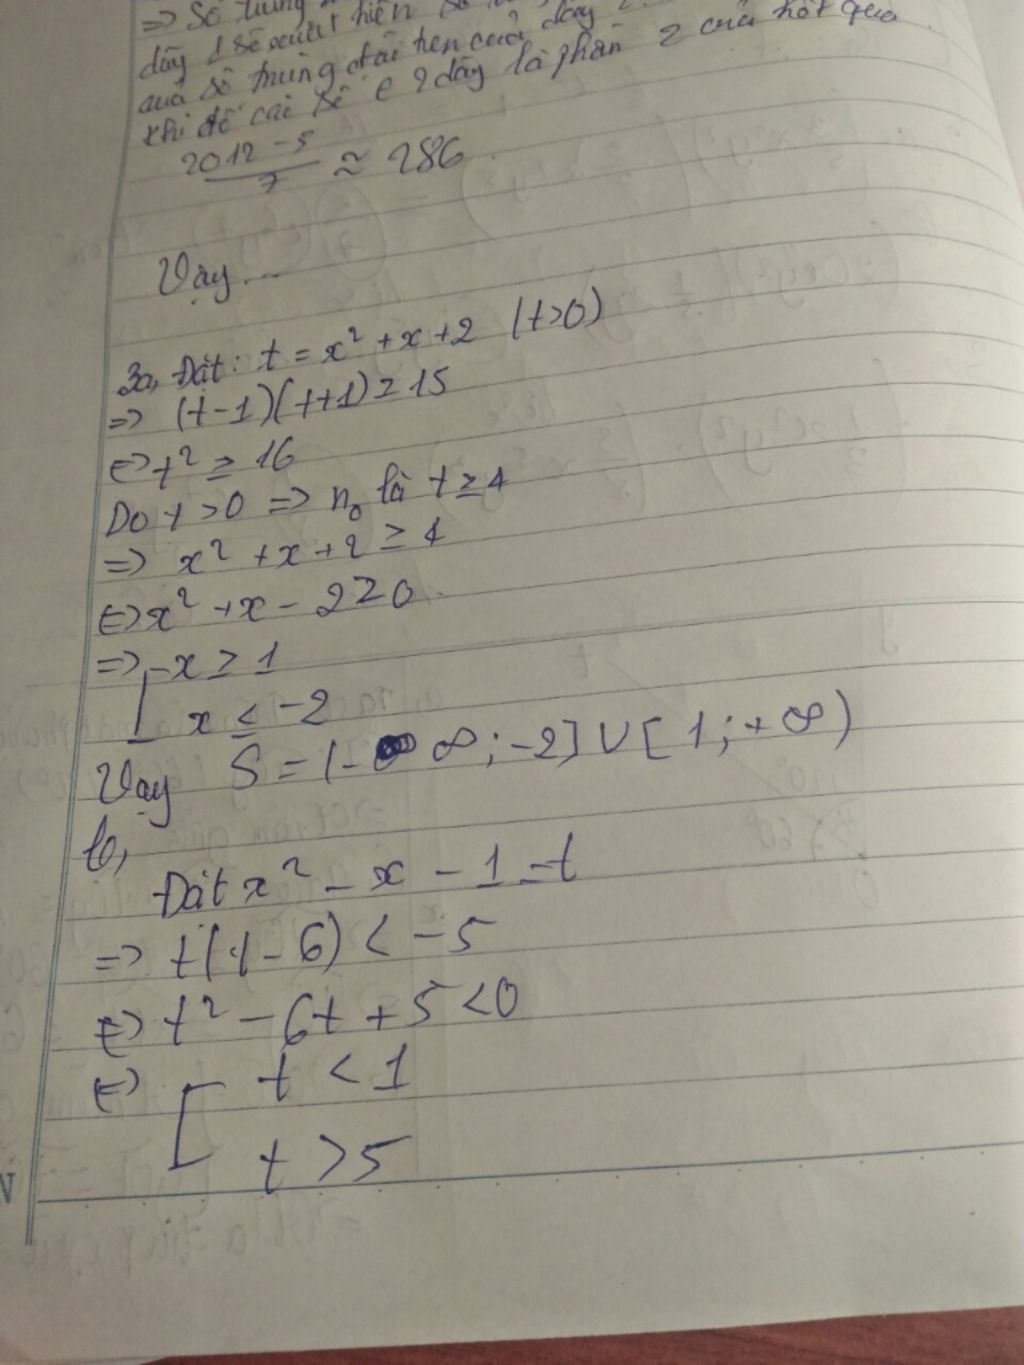 => Số trung
dãy 1 sẽ xuất hiện số
quả số trùng đầu tiên của dãy 2
khi đó các số ∈ 2 dãy là phần 2 của kết quả
2012 - 5
7 ≈ 286
Vậy...
3a, Đặt: t = x² + x + 2 (t>0)
=> (t-1)(t+1) ≥ 15
<=> t² ≥ 16
Do t > 0 => n₀ là t ≥ 4
=> x² + x + 2 ≥ 4
<=> x² + x - 2 ≥ 0
=> [ x ≥ 1
x ≤ -2
Vậy S = (-∞; -2] ∪ [1; +∞)
b,
Đặt x² - x - 1 = t
=> t(t-6) < -5
<=> t² - 6t + 5 < 0
<=> [ t < 1
t > 5